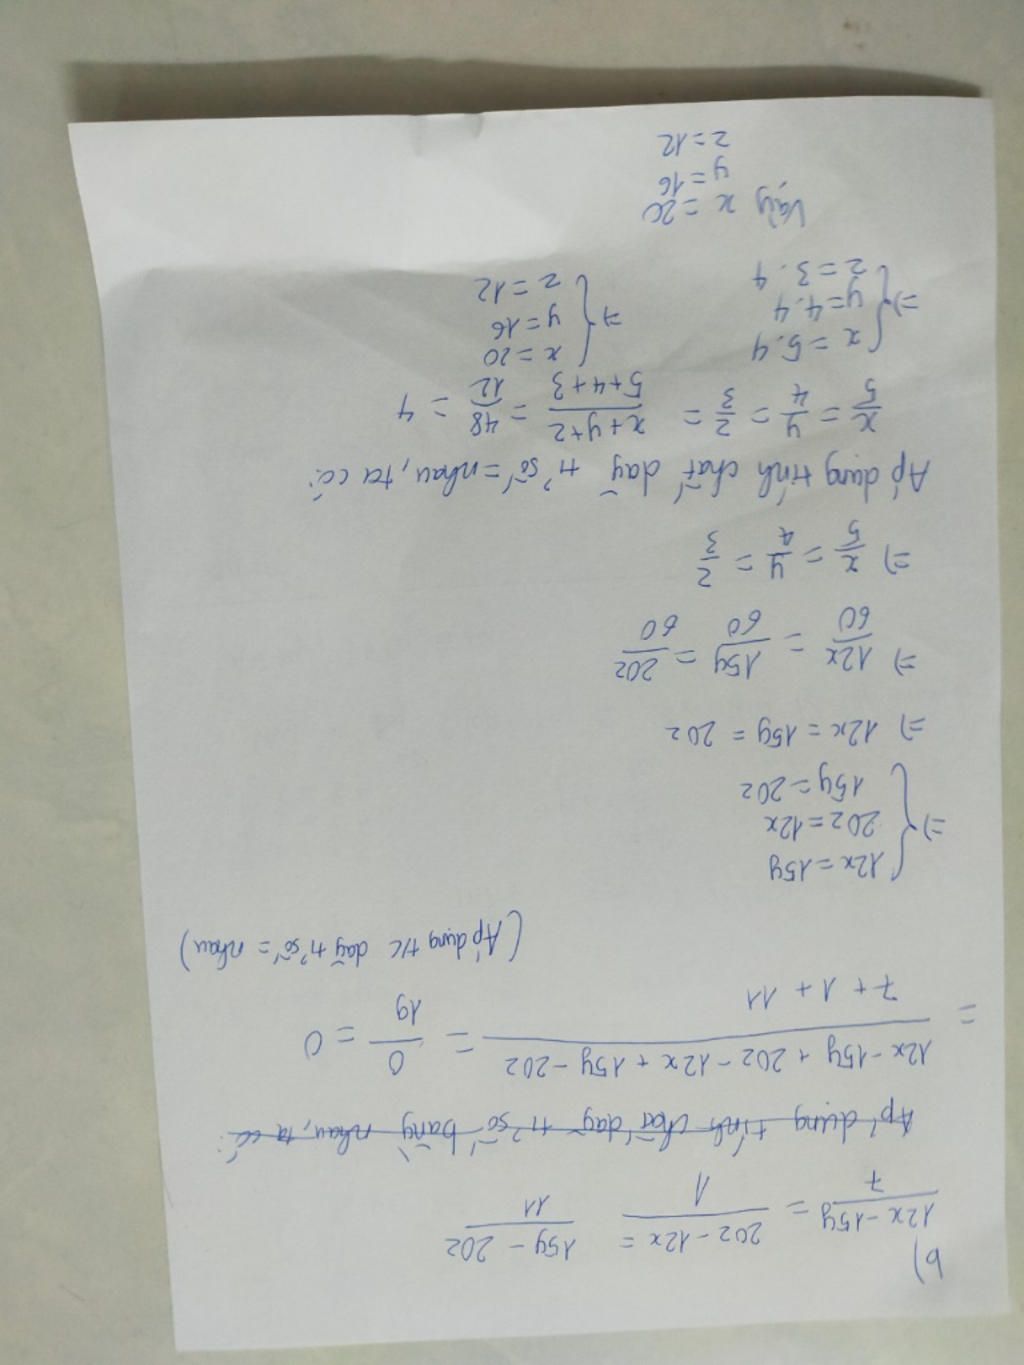 b)
12x-15y/7 = 20z-12x/1 = 15y-20z/11
Áp dụng tính chất dãy tỉ số bằng nhau, ta có:
= 12x-15y+20z-12x+15y-20z/7+1+11 = 0/19 = 0
(Áp dụng t/c dãy tỉ số = nhau)
⇒ { 12x = 15y
20z = 12x
15y = 20z
⇒ 12x = 15y = 20z
⇒ 12x/60 = 15y/60 = 20z/60
⇒ x/5 = y/4 = z/3
Áp dụng tính chất dãy tỉ số = nhau, ta có:
x/5 = y/4 = z/3 = x+y+z/5+4+3 = 48/12 = 4
⇒ { x = 5.4 ⇒ { x = 20
y = 4.4 y = 16
z = 3.4 z = 12
Vậy x = 20
y = 16
z = 12